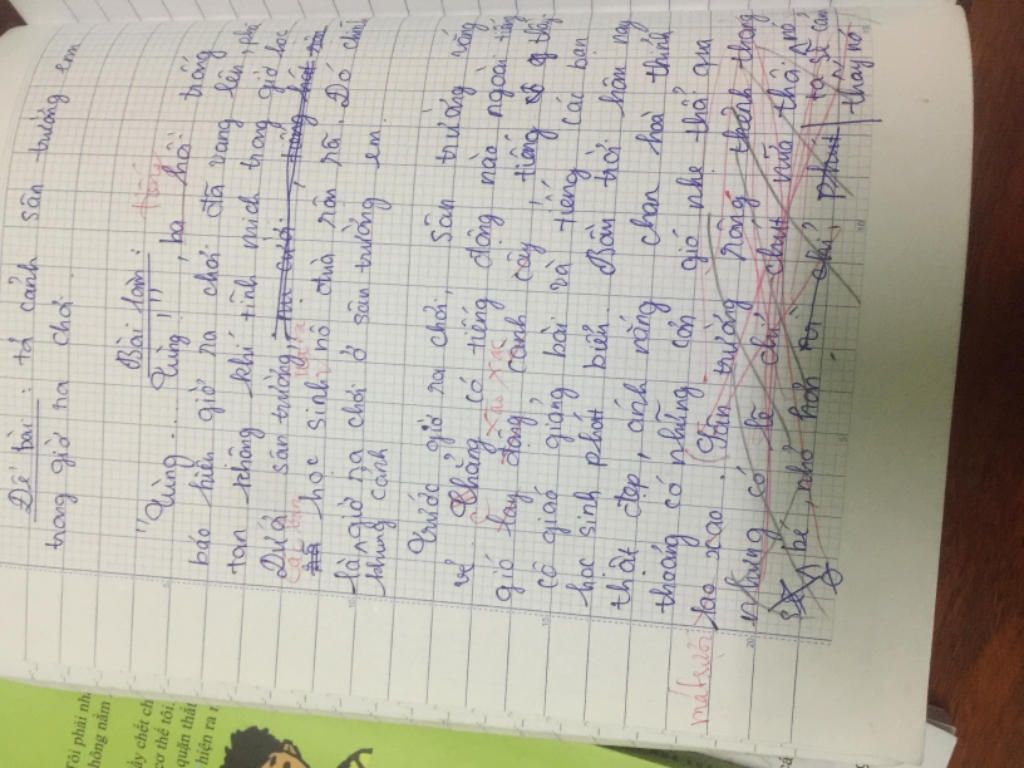 Đề bài : tả cảnh sân trường em
trong giờ ra chơi.
Bài làm :
"Tùng.... Tùng!", ba hồi trống
báo hiệu giờ ra chơi đã vang lên phá
tan không khí tĩnh mịch trong giờ học
Dưới sân trường,
các bạn học sinh nô đùa rôm rả. Đó chính
là giờ ra chơi ở sân trường em.
khung cảnh
Trước giờ ra chơi, sân trường vắng
vẻ chẳng có tiếng động nào ngoài tiếng
gió lay động xào xạc cành cây, tiếng thầy
cô giáo giảng bài và tiếng các bạn
học sinh phát biểu. Bầu trời hôm nay
thật đẹp, ánh nắng chan hoà thỉnh
thoảng có những cơn gió nhẹ thổi qua
mát rượi
xao xao. Sân trường rộng thênh thang
nhưng có lẽ chỉ chút nữa thôi nó
sẽ bé nhỏ hơn chỉ phút ta sẽ
thấy nó
Tôi phải nh
hông nằm
ảy chét ch
cơ thể tôi.
quặn thắt
hiện ra